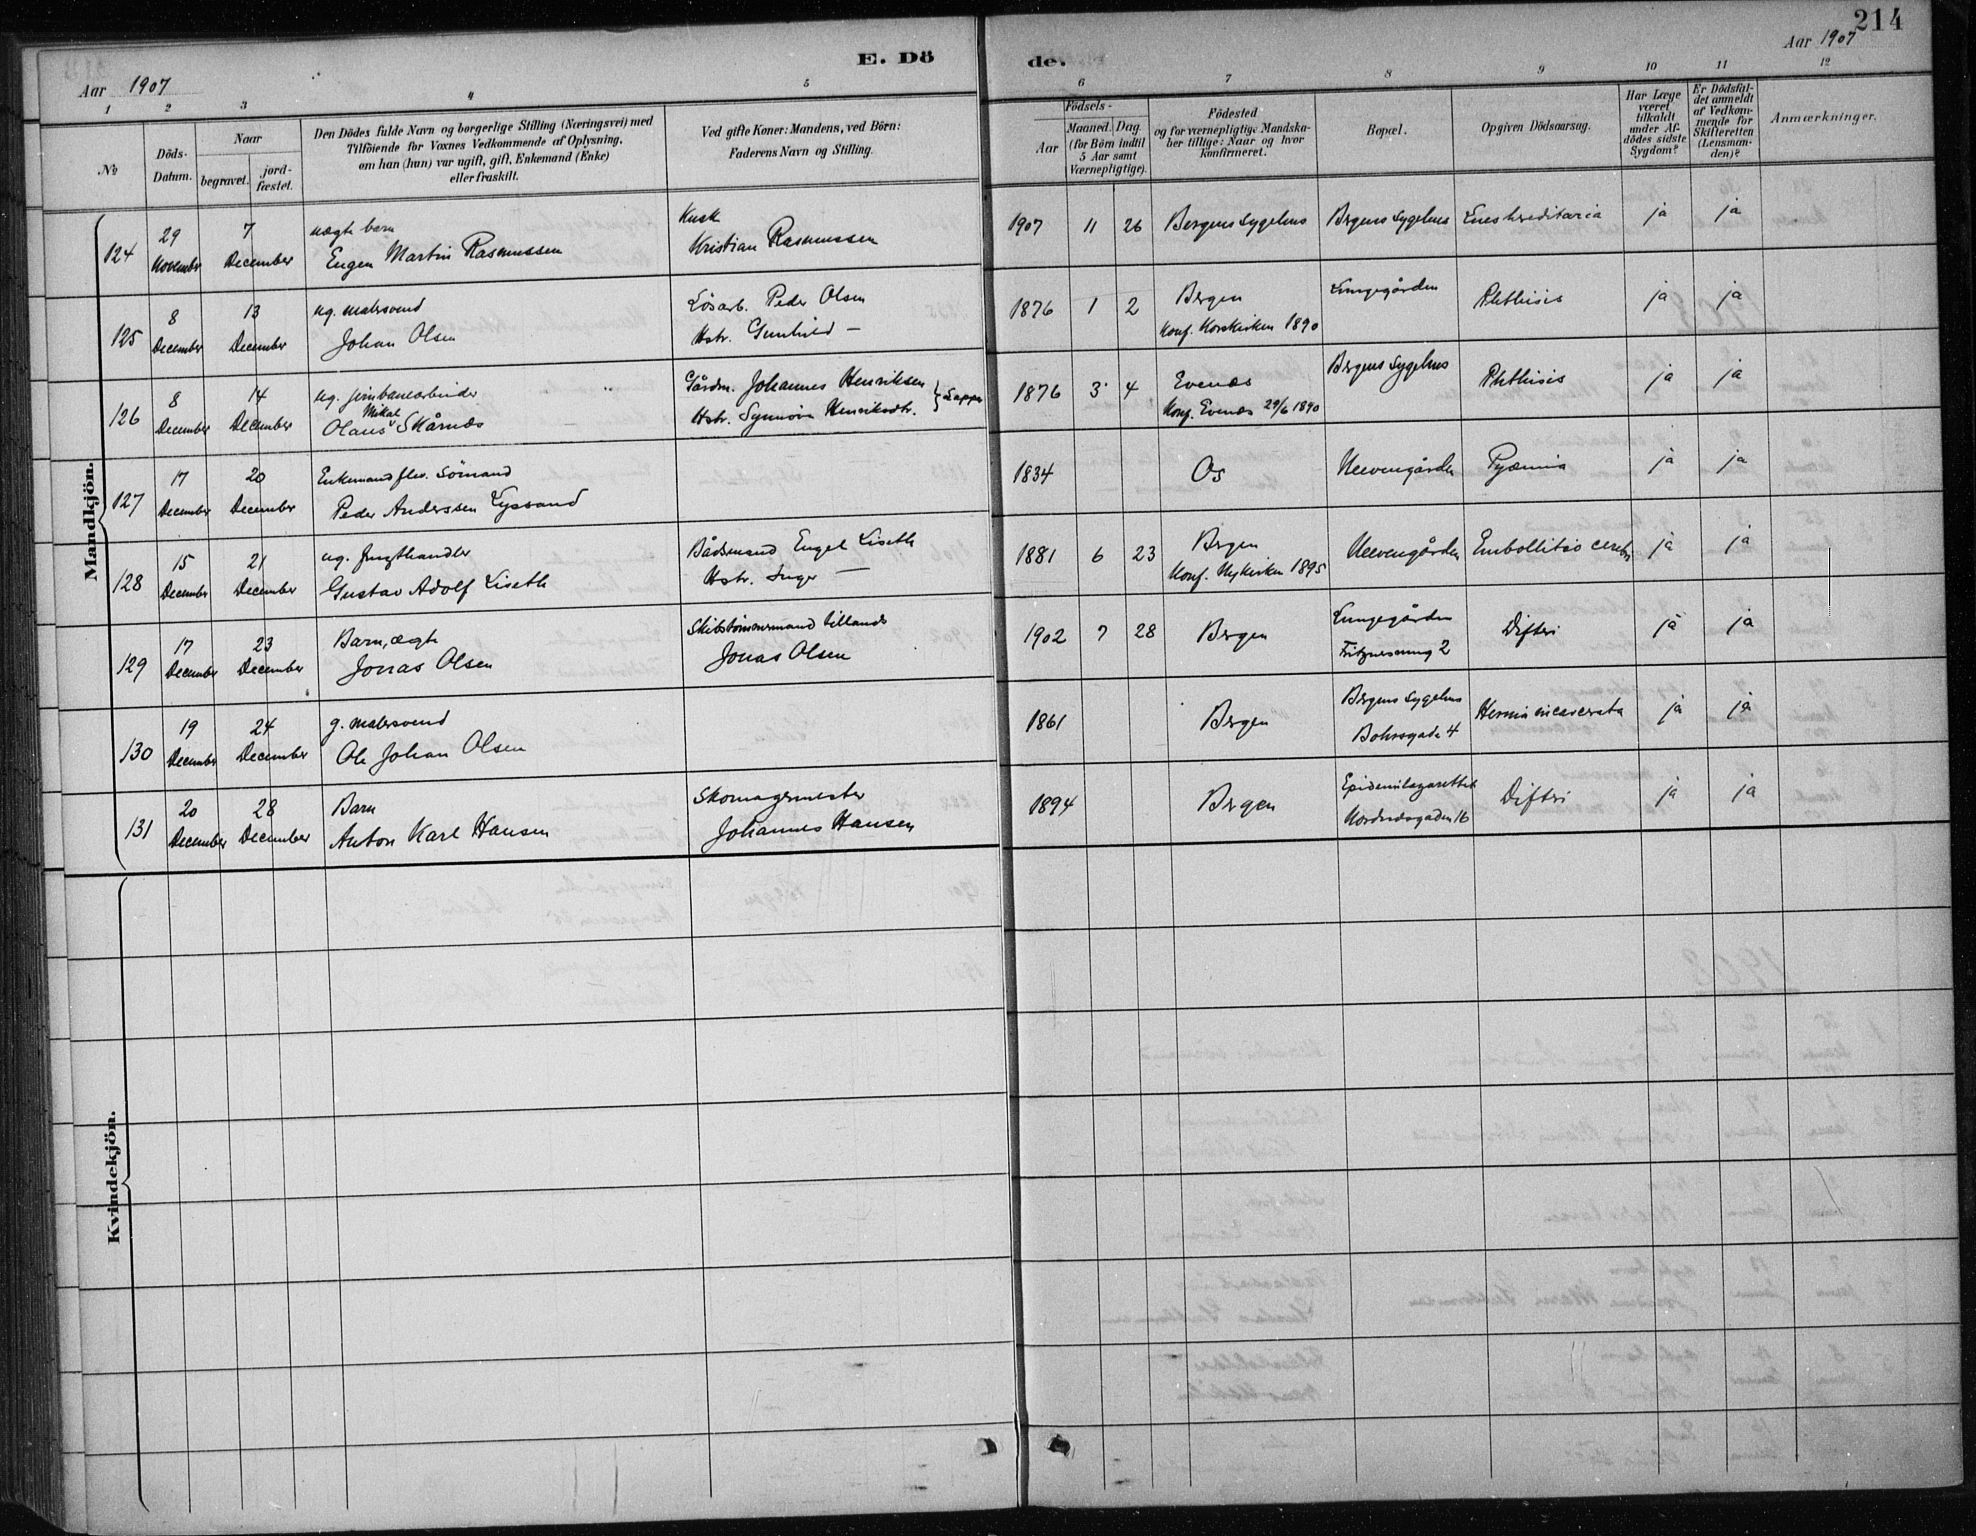 214
Aar 1907
E. Dö
de.
Aar 1907
1 2 3 4 5 6 7 8 9 10 11 12
No
Döds-Datum.
Naar
begravet.
jord-fæstet.
Den Dödes fulde Navn og borgerlige Stilling (Næringsvei) med
Tilföiende for Voxnes Vedkommende af Oplysning,
om han (hun) var ugift, gift, Enkemand (Enke)
eller fraskilt.
Ved gifte Koner: Mandens, ved Börn:
Faderens Navn og Stilling.
Födsels-
Aar
Maaned. Dag
(for Börn indtil
5 Aar samt
Værnepligtige).
Födested
og for værnepligtige Mandska-
ber tillige: Naar og hvor
konfirmeret.
Bopæl.
Opgiven Dödsaarsag.
Har Læge
været
tilkaldt
under Af-
dödes sidste
Sygdom?
Er Dödsfal-
det anmeldt
af Vedkom-
mende for
Skifteretten
(Lensman-
den)?
Anmærkninger.
Mandkjön.
124 29 November 7 December
uægte barn
Eugen Martin Rasmussen
Kusk
Kristian Rasmussen
1907 11 26 Bergens Sygehus Bergens Sygehus Lues hereditaria ja ja
125 8 December 13 December
ug. malersvend
Johan Olsen
Lösarb. Peder Olsen
Hstr. Gunhild —
1876 1 2 Bergen
Konf. Korskirken 1890
Lungegården Phthisis ja ja
126 8 December 14 December
ug. jernbanearbeider
Olaus Mikal Skårnæs
Gårdm. Johannes Henriksen
Hstr. Synnöva Henriksdtr. } Lapper
1876 3 4 Evenæs
Konf. Evenæs 29/6 1890
Bergens Sygehus Phthisis ja ja
127 17 December 20 December
Enkemand flev. Sömand
Peder Anderssen Lyssand
1834 Os Neevengården Pyæmia ja ja
128 15 December 21 December
ug. frugthandler
Gustav Adolf Liseth
Bådsmand Engel Liseth
Hstr. Inger —
1881 6 23 Bergen
Konf. Nykirken 1895
Neevengården Embollitio cerebr. ja ja
129 17 December 23 December
Barn, ægte
Jonas Olsen
Skibstömmermand tillands
Jonas Olsen
1902 7 28 Bergen
Lungegården
2
Difteri ja ja
130 19 December 24 December
g. malersvend
Ole Johan Olsen
1861 Bergen
Bergens Sygehus
Bohrsgade 4
Hernia incarcerata ja ja
131 20 December 28 December
Barn
Anton Karl Hansen
Skomagermester
Johannes Hansen
1894 Bergen
Epidemilazarettet
Nordnæsgaden 16
Difteri ja ja
Kvindekjön.